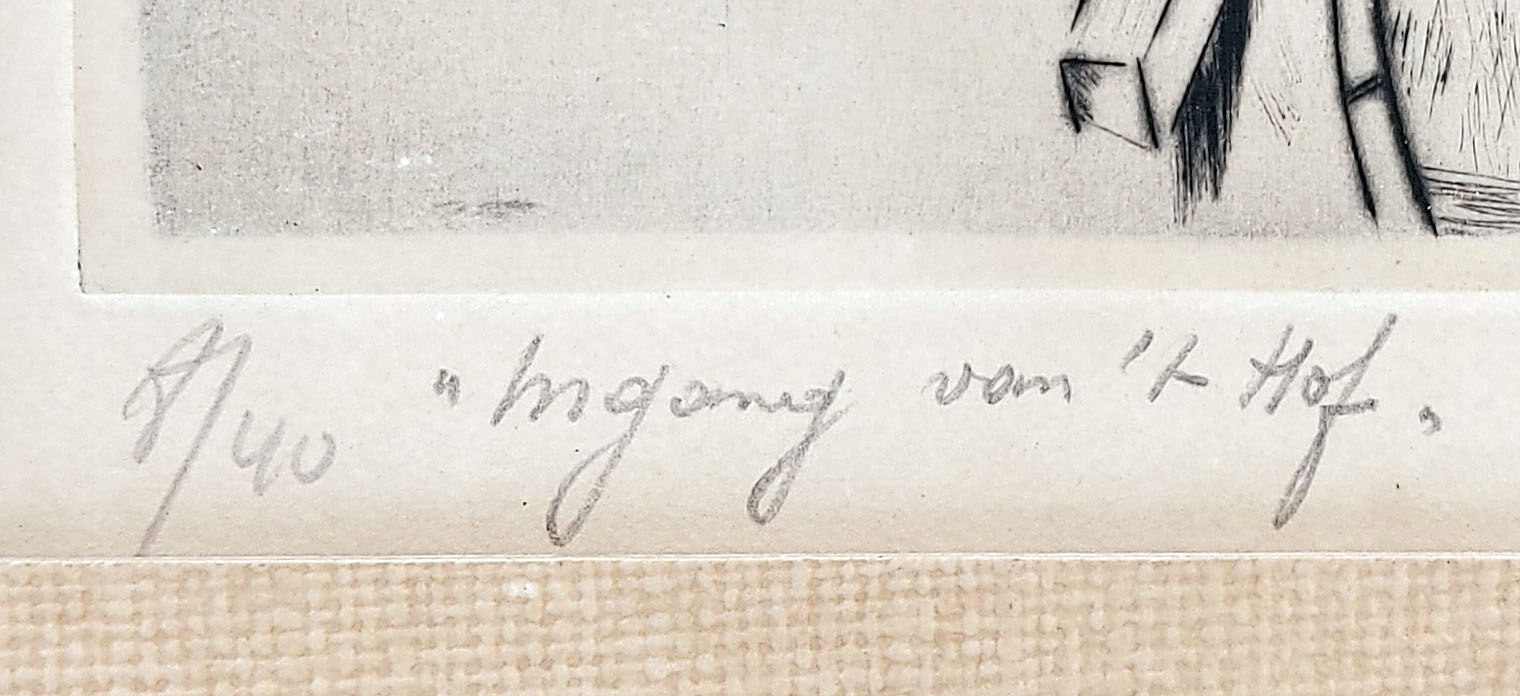 /40 „Ingang van 't Hof„